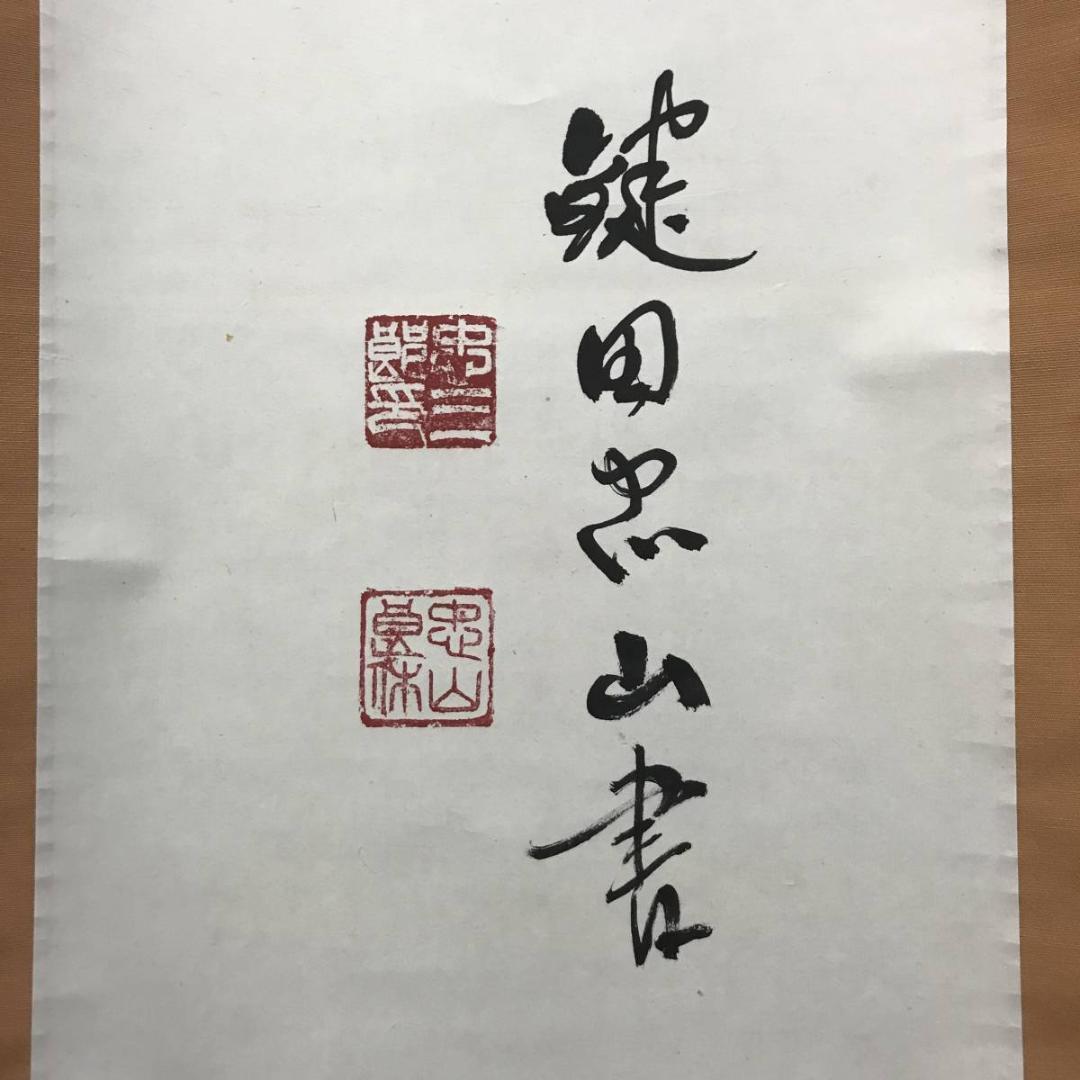 鍵田忠山書
忠三
郎印
忠山